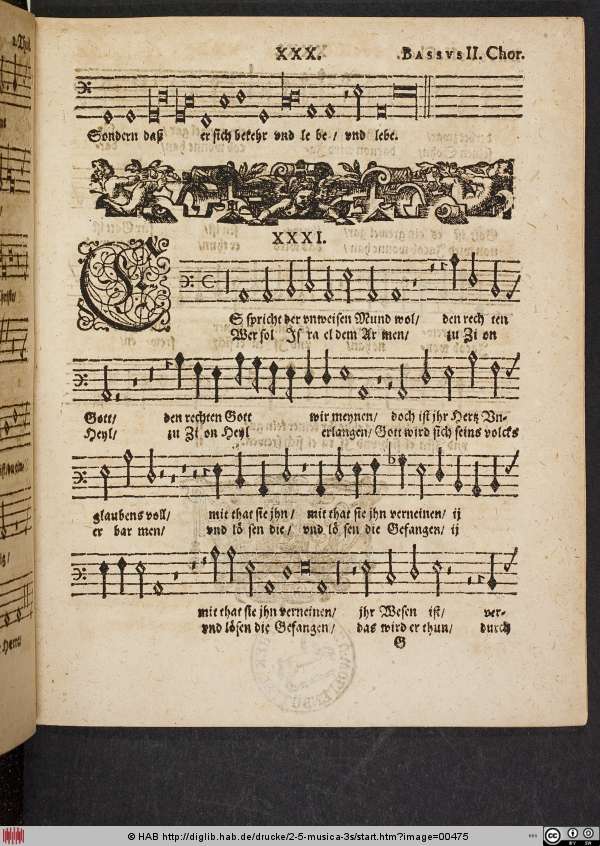 XXX. BASSVS II. Chor.
Sondern daß er sich bekehr vnd le be/ vnd lebe.
XXXI.
ES spricht der vnweisen Mund wol/ den rech ten
Wer sol Is ra el dem Ar men/ zu Zi on
Gott/ den rechten Gott wir meynen/ doch ist jhr Hertz Vn-
Heyl/ zu Zi on Heyl erlangen/ Gott wird sich seins volcks
glaubens voll/ mit that sie jhn/ mit that sie jhn verneinen/ ij
er bar men/ vnd lö sen die/ vnd lö sen die Gefangen/ ij
mit that sie jhn verneinen/ jhr Wesen ist/ ver-
vnd lösen die Gefangen/ das wird er thun/ durch
G
© HAB http://diglib.hab.de/drucke/2-5-musica-3s/start.htm?image=00475